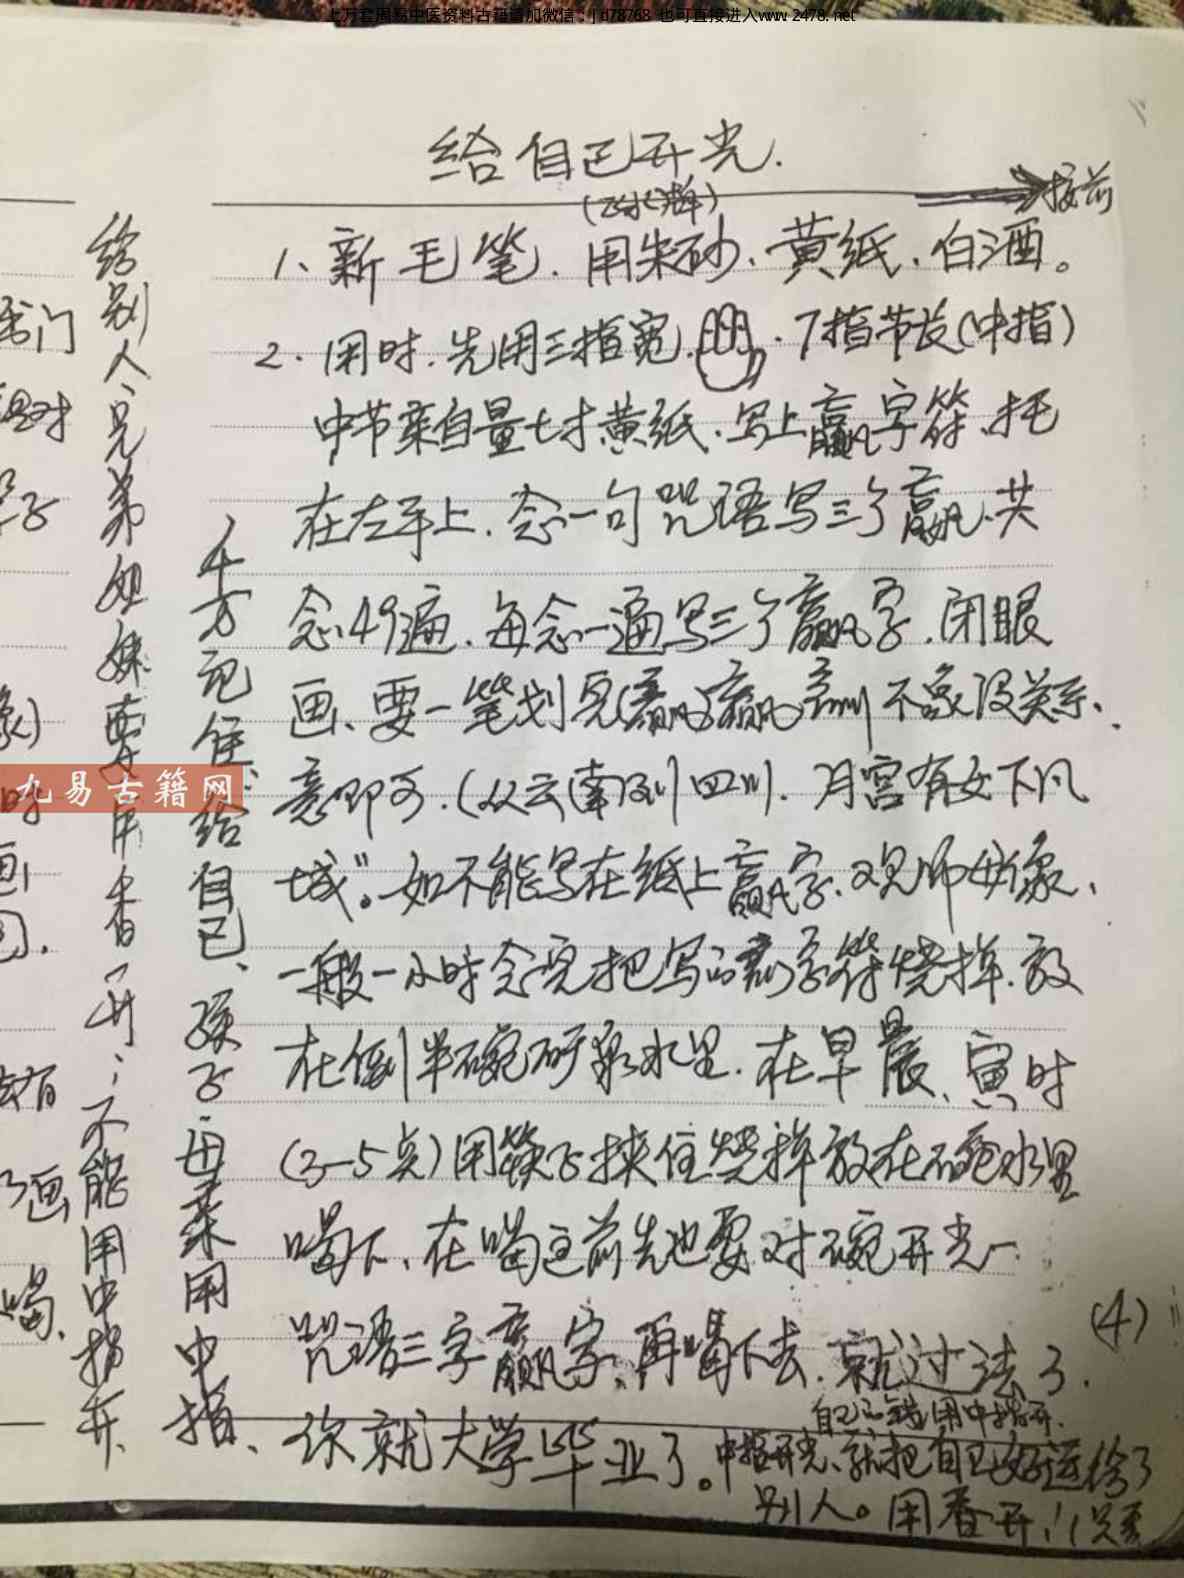 上万套周易中医资料古籍请加微信：ld78768 也可直接进入www.2478.net
给自己开光.
接前
1、新毛笔.用朱砂、黄纸、白酒。
2.用时.先用三指宽.7指节长(中指)
中节来自量七寸黄纸.写上赢字符.托
在左手上.念一句咒语写三个赢.共
念49遍.每念一遍写三个赢字.闭眼
画、要一笔划完(赢)赢)赢 不象没关系、
意即可.(从云南到四川.月宫有女下凡
城”。如不能写在纸上赢字.观师母像、
一般一小时念完把写的赢字符烧掉.放
在倒半碗矿泉水里.在早晨、寅时
(3-5点)用筷子挟住烧掉放在碗水里
喝下、在喝之前先也要对碗开光一
咒语三字赢字、再喝下去.就过法了.
(4)
自己用中指开.
你就大学毕业了。中指开光、就把自己好运给了
别人。用香开
千万记住、给自己、孩子.母亲用中指、
给别人、兄弟姐妹要用香开；不能用中指开、
九易古籍网